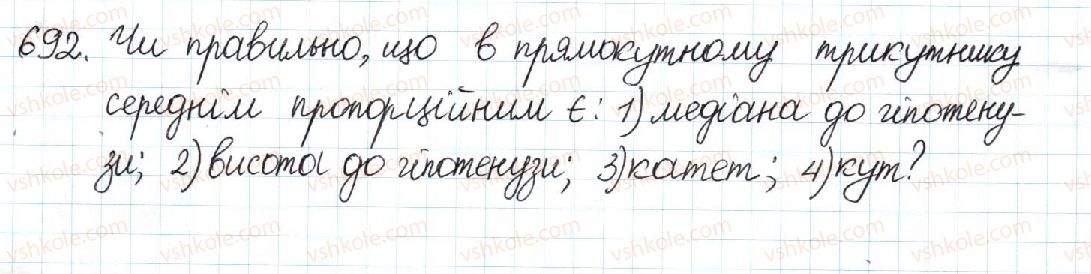 692. Чи правильно, що в прямокутному трикутнику
середнім пропорційним є: 1) медіана до гіпотену-
зи; 2) висота до гіпотенузи; 3) катет; 4) кут?